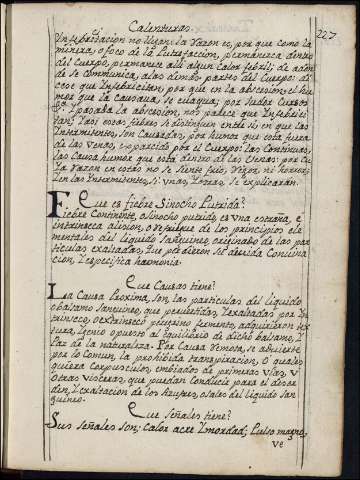 Calenturas. 227
Intebricitacion no llegan: la razon es, por que como la
minera, o foco de la Putrefaccion, permanesca dentro
del Cuerpo, permanece alli algun Calor febril; de adon
de se comunica, a las demas partes del Cuerpo: di
cese que Intebricitan, por que en la abscesion, el hu
mor que la causaua, se euaqua; por sudor Curso &c.
I pasada la abscesion, nos parece que Intebrici
tan, I asi estas fiebres se distinguen entre si en que las
Intermitentes, son Causadas, por humor que esta fuera
de las Venas, esparcido por el Cuerpo: las Continuas,
las Causa humor que esta dentro de las Venas: por cu
ia razon en estas no se siente frio, Rigor, ni horror;
I en las Intermitentes, si: unas, I otras, se explicarán.
Que es fiebre Sinocho Putrida?
Fiebre Continente, o Sinocho putrido, es Vna estraña, e
intrinseca de los principios ele
mentales del liquido Sanguineo, originado de las par
ticulas exaltadas, que perdieron su devida Convina
cion, I especifica harmonia.
Que Causas tiene?
La Causa Proxima, son las particulas del liquido
o balsamo Sanguineo, que pervertidas, I exaltadas por In
trinseco, o extrinseco peregrino fermento, adquirieron tex
tura, I genio opuesto al equilibrio de dicho balsamo, I
Paz de la naturaleza. Por Causa Remota, se advierte
por lo Comun, la prohibida transpiracion, O quales
quiera Corpusculos, embiados de primeras vias, V
Otras visceras, que puedan Conducir para el desor
den, I exaltacion de los Azufres, o sales del liquido San
guineo.
Que señales tiene?
Sus señales son; Calor acre I mordaz; Pulso magno,
ve